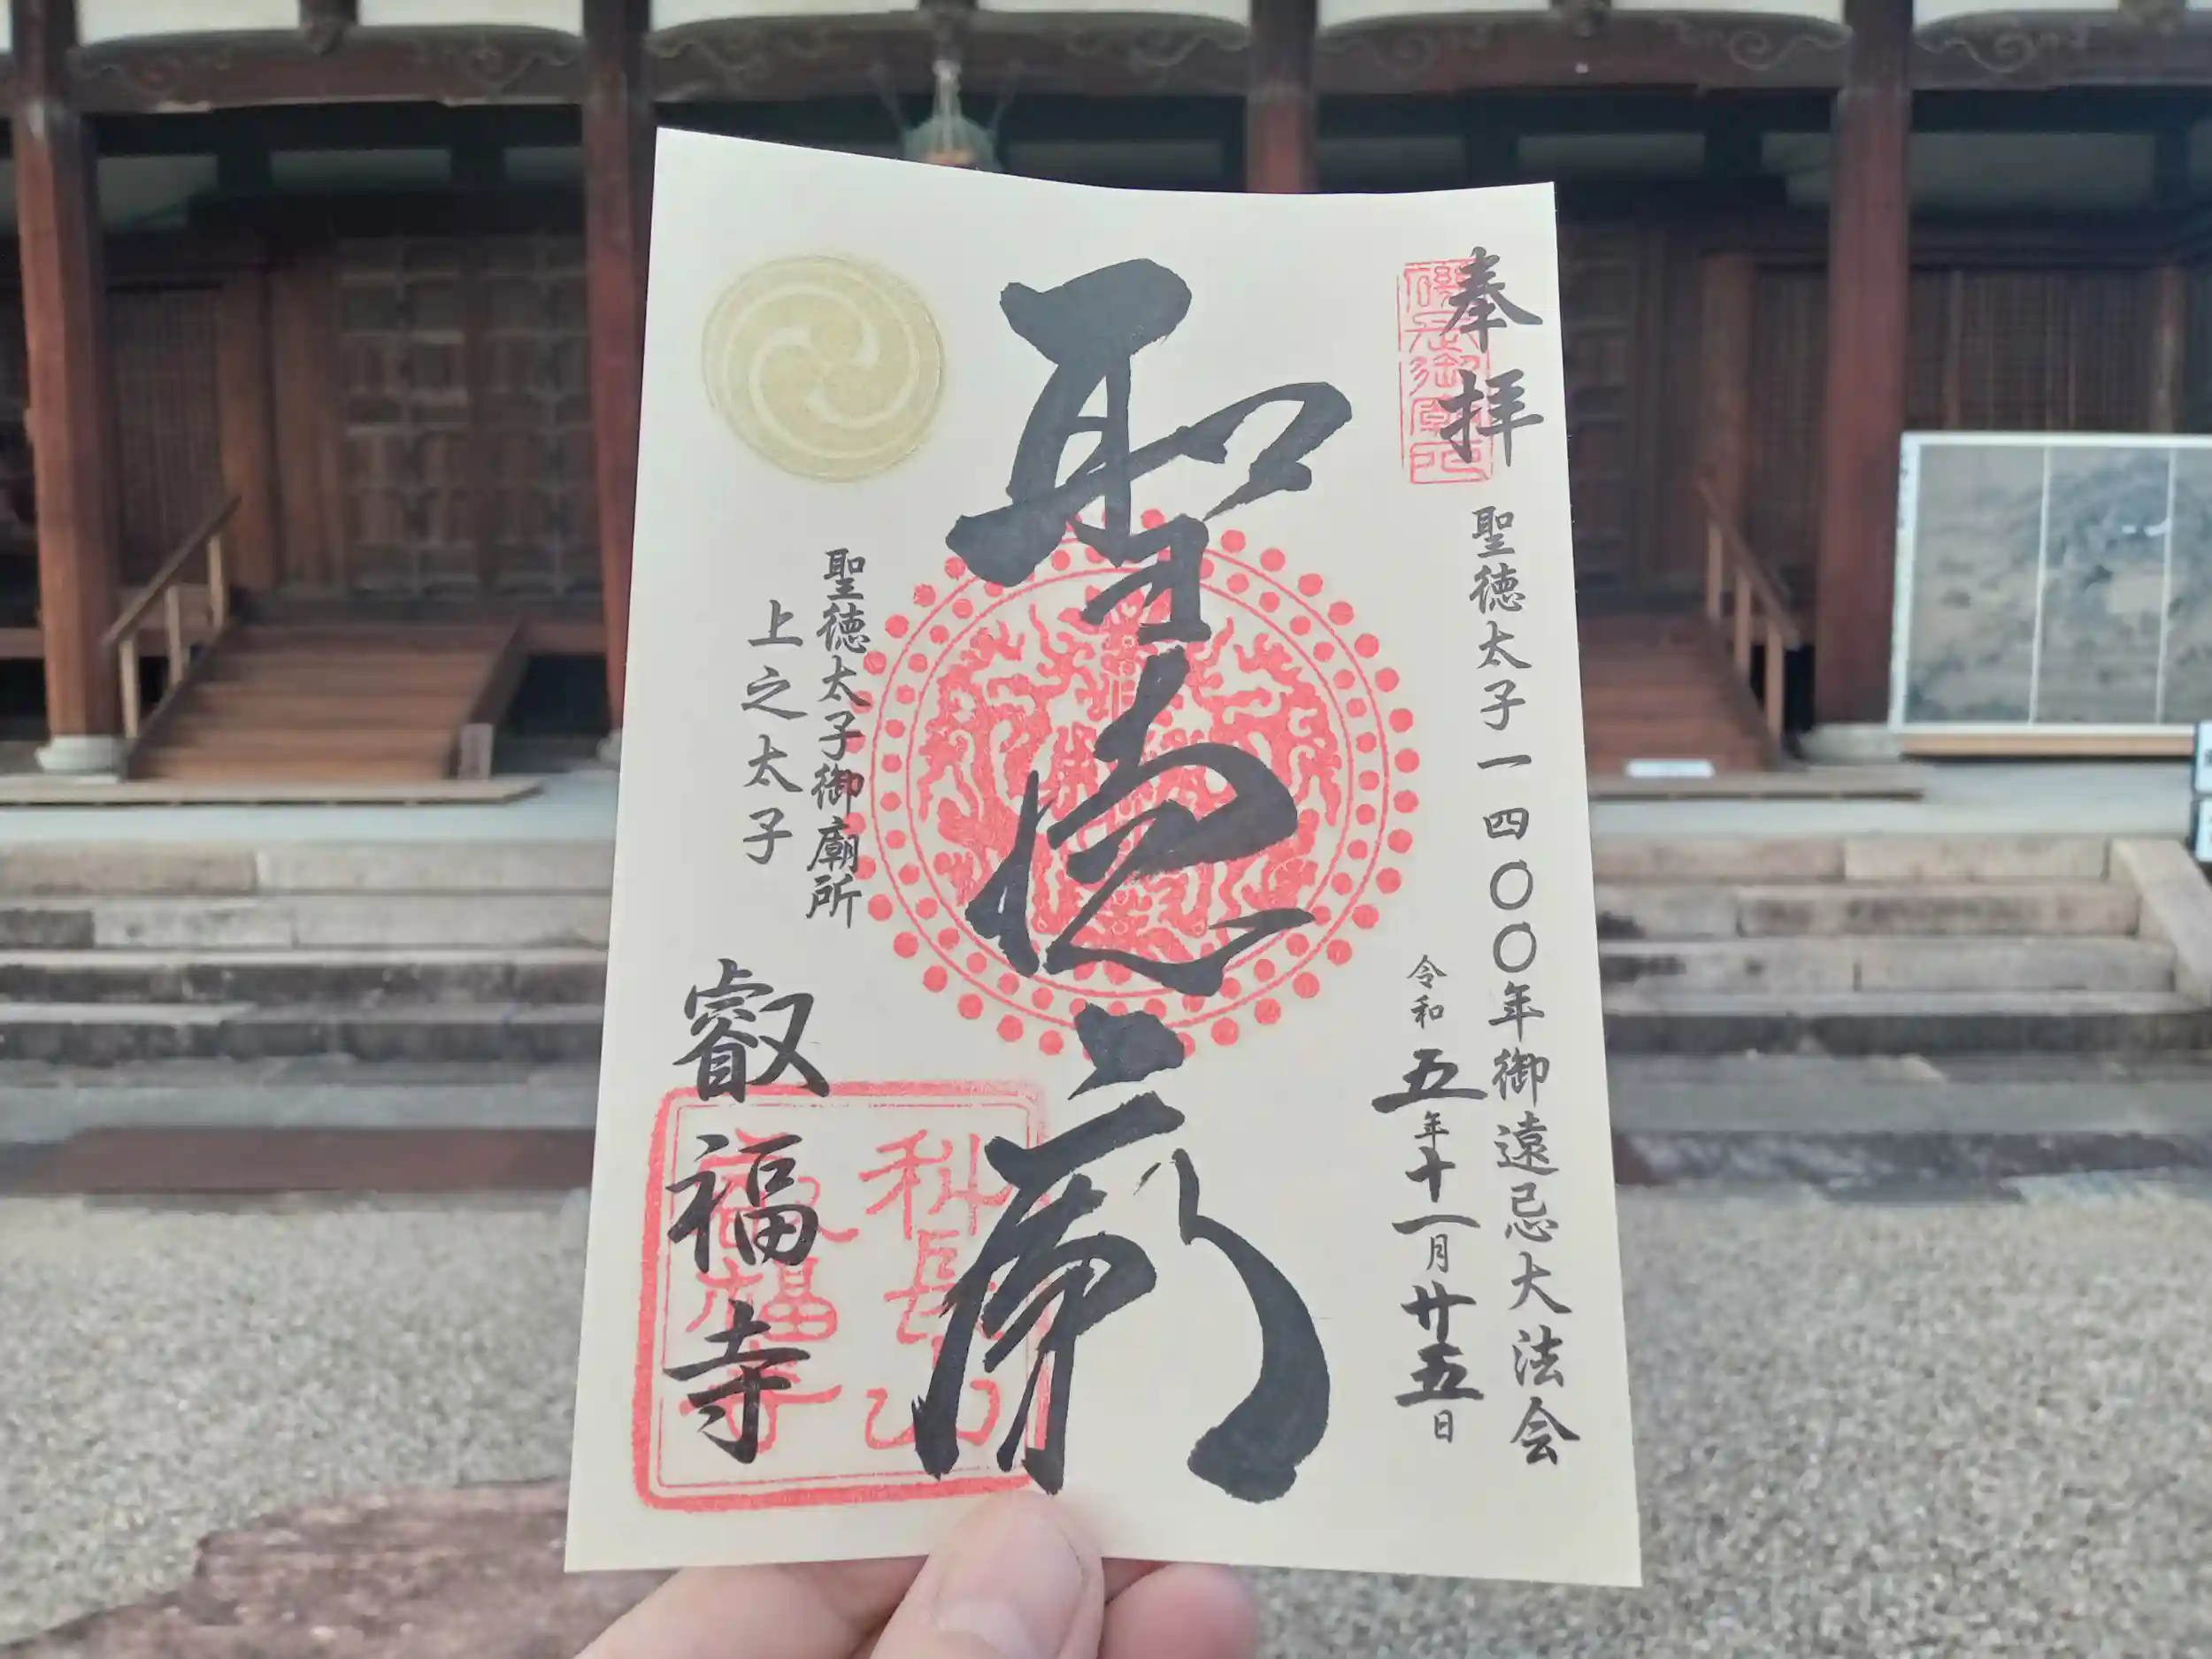 奉拝
磯長御廟
聖徳太子一四〇〇年御遠忌大法会
令和五年十一月廿五日
聖徳廟
聖徳太子御廟所
上之太子
叡福寺
科長山
叡福寺